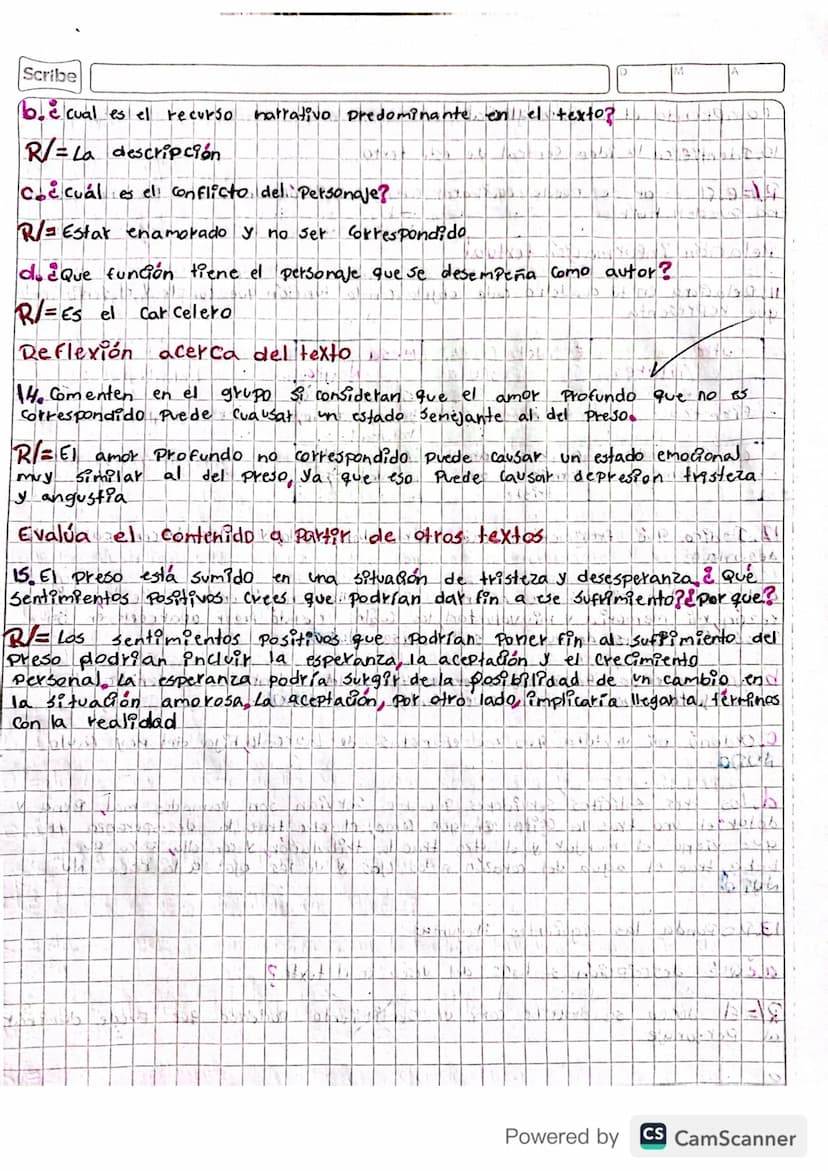 Scribe
D M A
b. ¿cual es el recurso narrativo predominante en el texto?
R/= La descripción
c. ¿cuál es el conflicto del personaje?
R/= Estar enamorado y no ser correspondido
d. ¿Que función tiene el personaje que se desempeña como autor?
R/= Es el carcelero
Reflexión acerca del texto
14. Comenten en el grupo si consideran que el amor profundo que no es
correspondido puede cuausar un estado senejante al del preso.
R/= El amor profundo no correspondido puede causar un estado emocional
muy similar al del preso, ya que eso puede causar depresion tristeza
y angustia
Evalúa el contenido a partir de otros textos
15. El preso está sumido en una situación de tristeza y desesperanza, ¿Qué
sentimientos positivos crees que podrían dar fin a ese sufrimiento? ¿por que?
R/= Los sentimientos positivos que podrían poner fin al sufrimiento del
preso podrian incluir la esperanza, la aceptación y el crecimiento
personal. La esperanza podría surgir de la posibilidad de un cambio en
la situación amorosa, La aceptación, por otro lado, implicaría llegar a términos
con la realidad
Powered by CS CamScanner